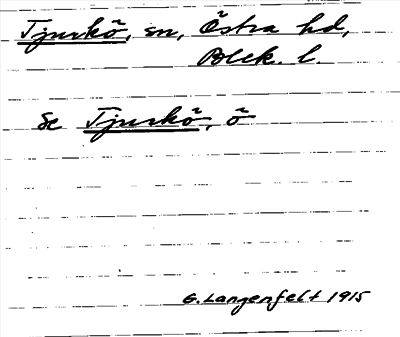 Tjurkö, sn, Östra hd,
Blek. l.
Se Tjurkö, ö
G. Langenfelt 1915